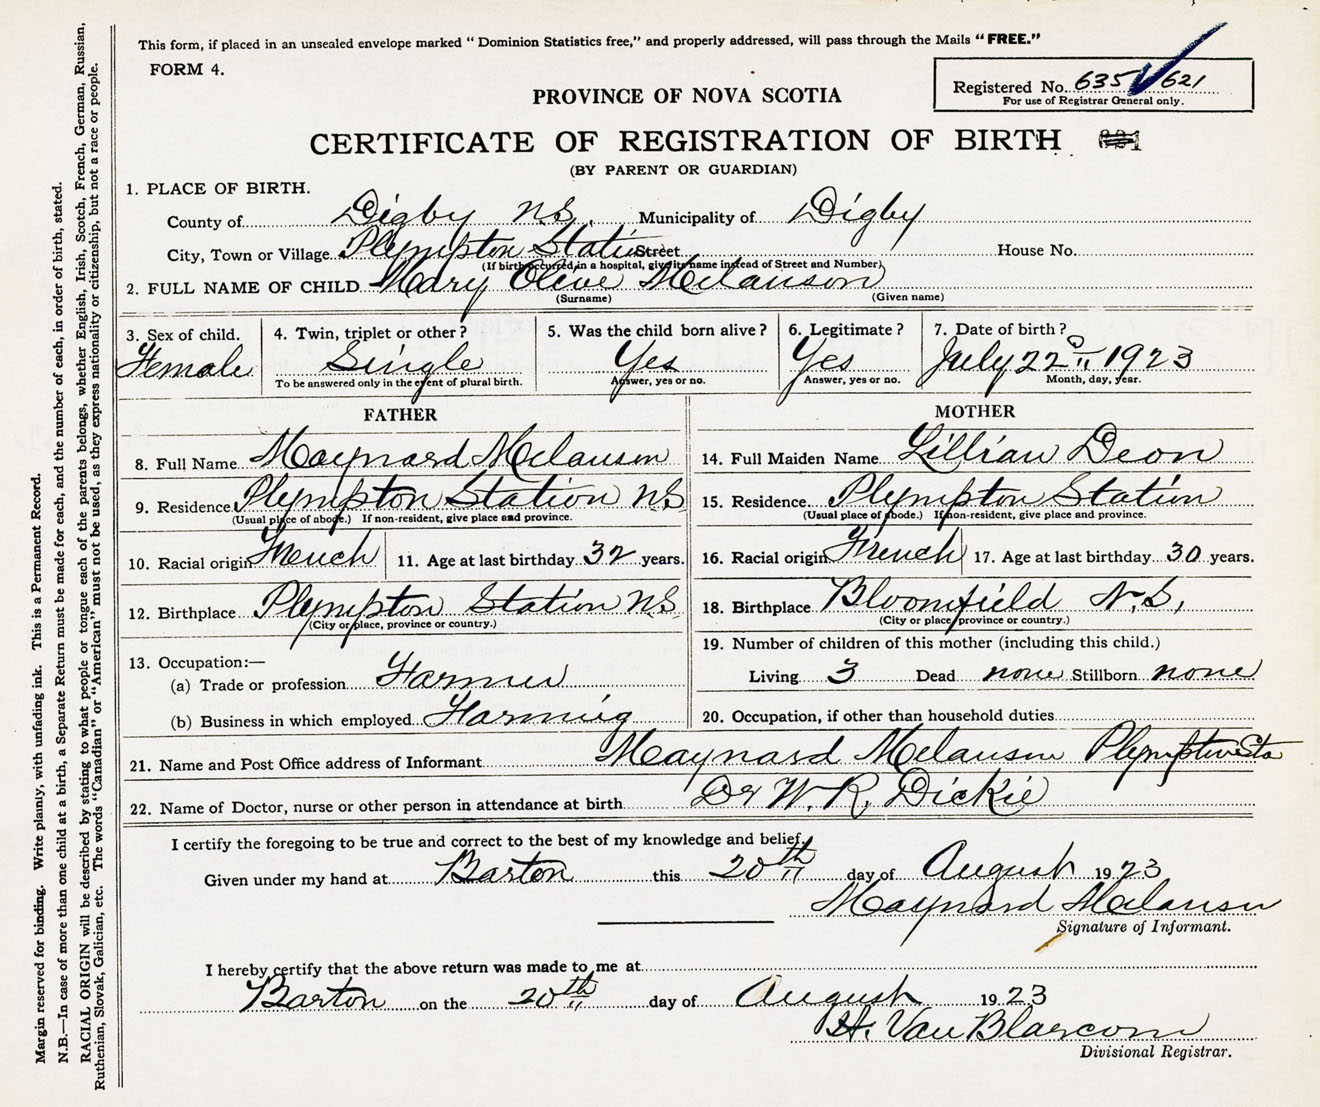 This form, if placed in an unsealed envelope marked "Dominion Statistics free," and properly addressed, will pass through the Mails "FREE."
FORM 4.
Registered No. 635 621
For use of Registrar General only.
PROVINCE OF NOVA SCOTIA
CERTIFICATE OF REGISTRATION OF BIRTH
(BY PARENT OR GUARDIAN)
1. PLACE OF BIRTH.
County of Digby N.S. Municipality of Digby
City, Town or Village Plympton Station Street House No.
(If birth occurred in a hospital, give its name instead of Street and Number)
2. FULL NAME OF CHILD Mary Olive Melanson
(Surname) (Given name)
3. Sex of child. 4. Twin, triplet or other? 5. Was the child born alive? 6. Legitimate? 7. Date of birth?
Female Single Yes Yes July 22 1923
To be answered only in the event of plural birth. Answer, yes or no. Answer, yes or no. Month, day, year.
FATHER
8. Full Name Maynard Melanson
9. Residence Plympton Station NS
(Usual place of abode.) If non-resident, give place and province.
10. Racial origin French 11. Age at last birthday 32 years.
12. Birthplace Plympton Station NS
(City or place, province or country.)
13. Occupation:—
(a) Trade or profession Farmer
(b) Business in which employed Farming
MOTHER
14. Full Maiden Name Lillian Deon
15. Residence Plympton Station
(Usual place of abode.) If non-resident, give place and province.
16. Racial origin French 17. Age at last birthday 30 years.
18. Birthplace Bloomfield N.S,
(City or place, province or country.)
19. Number of children of this mother (including this child.)
Living 3 Dead none Stillborn none
20. Occupation, if other than household duties
21. Name and Post Office address of Informant Maynard Melanson Plympton Sta
22. Name of Doctor, nurse or other person in attendance at birth Dr W. R. Dickie
I certify the foregoing to be true and correct to the best of my knowledge and belief.
Given under my hand at Barton this 20th day of August 1923
Maynard Melanson
Signature of Informant.
I hereby certify that the above return was made to me at
Barton on the 20th day of August 1923
H. Van Blarcom
Divisional Registrar.
Margin reserved for binding. Write plainly, with unfading ink. This is a Permanent Record.
N.B.—In case of more than one child at a birth, a Separate Return must be made for each, and the number of each, in order of birth, stated.
RACIAL ORIGIN will be described by stating to what people or tongue each of the parents belongs, whether English, Irish, Scotch, French, German, Russian,
Ruthenian, Slovak, Galician, etc. The words "Canadian" or "American" must not be used, as they express nationality or citizenship, but not a race or people.